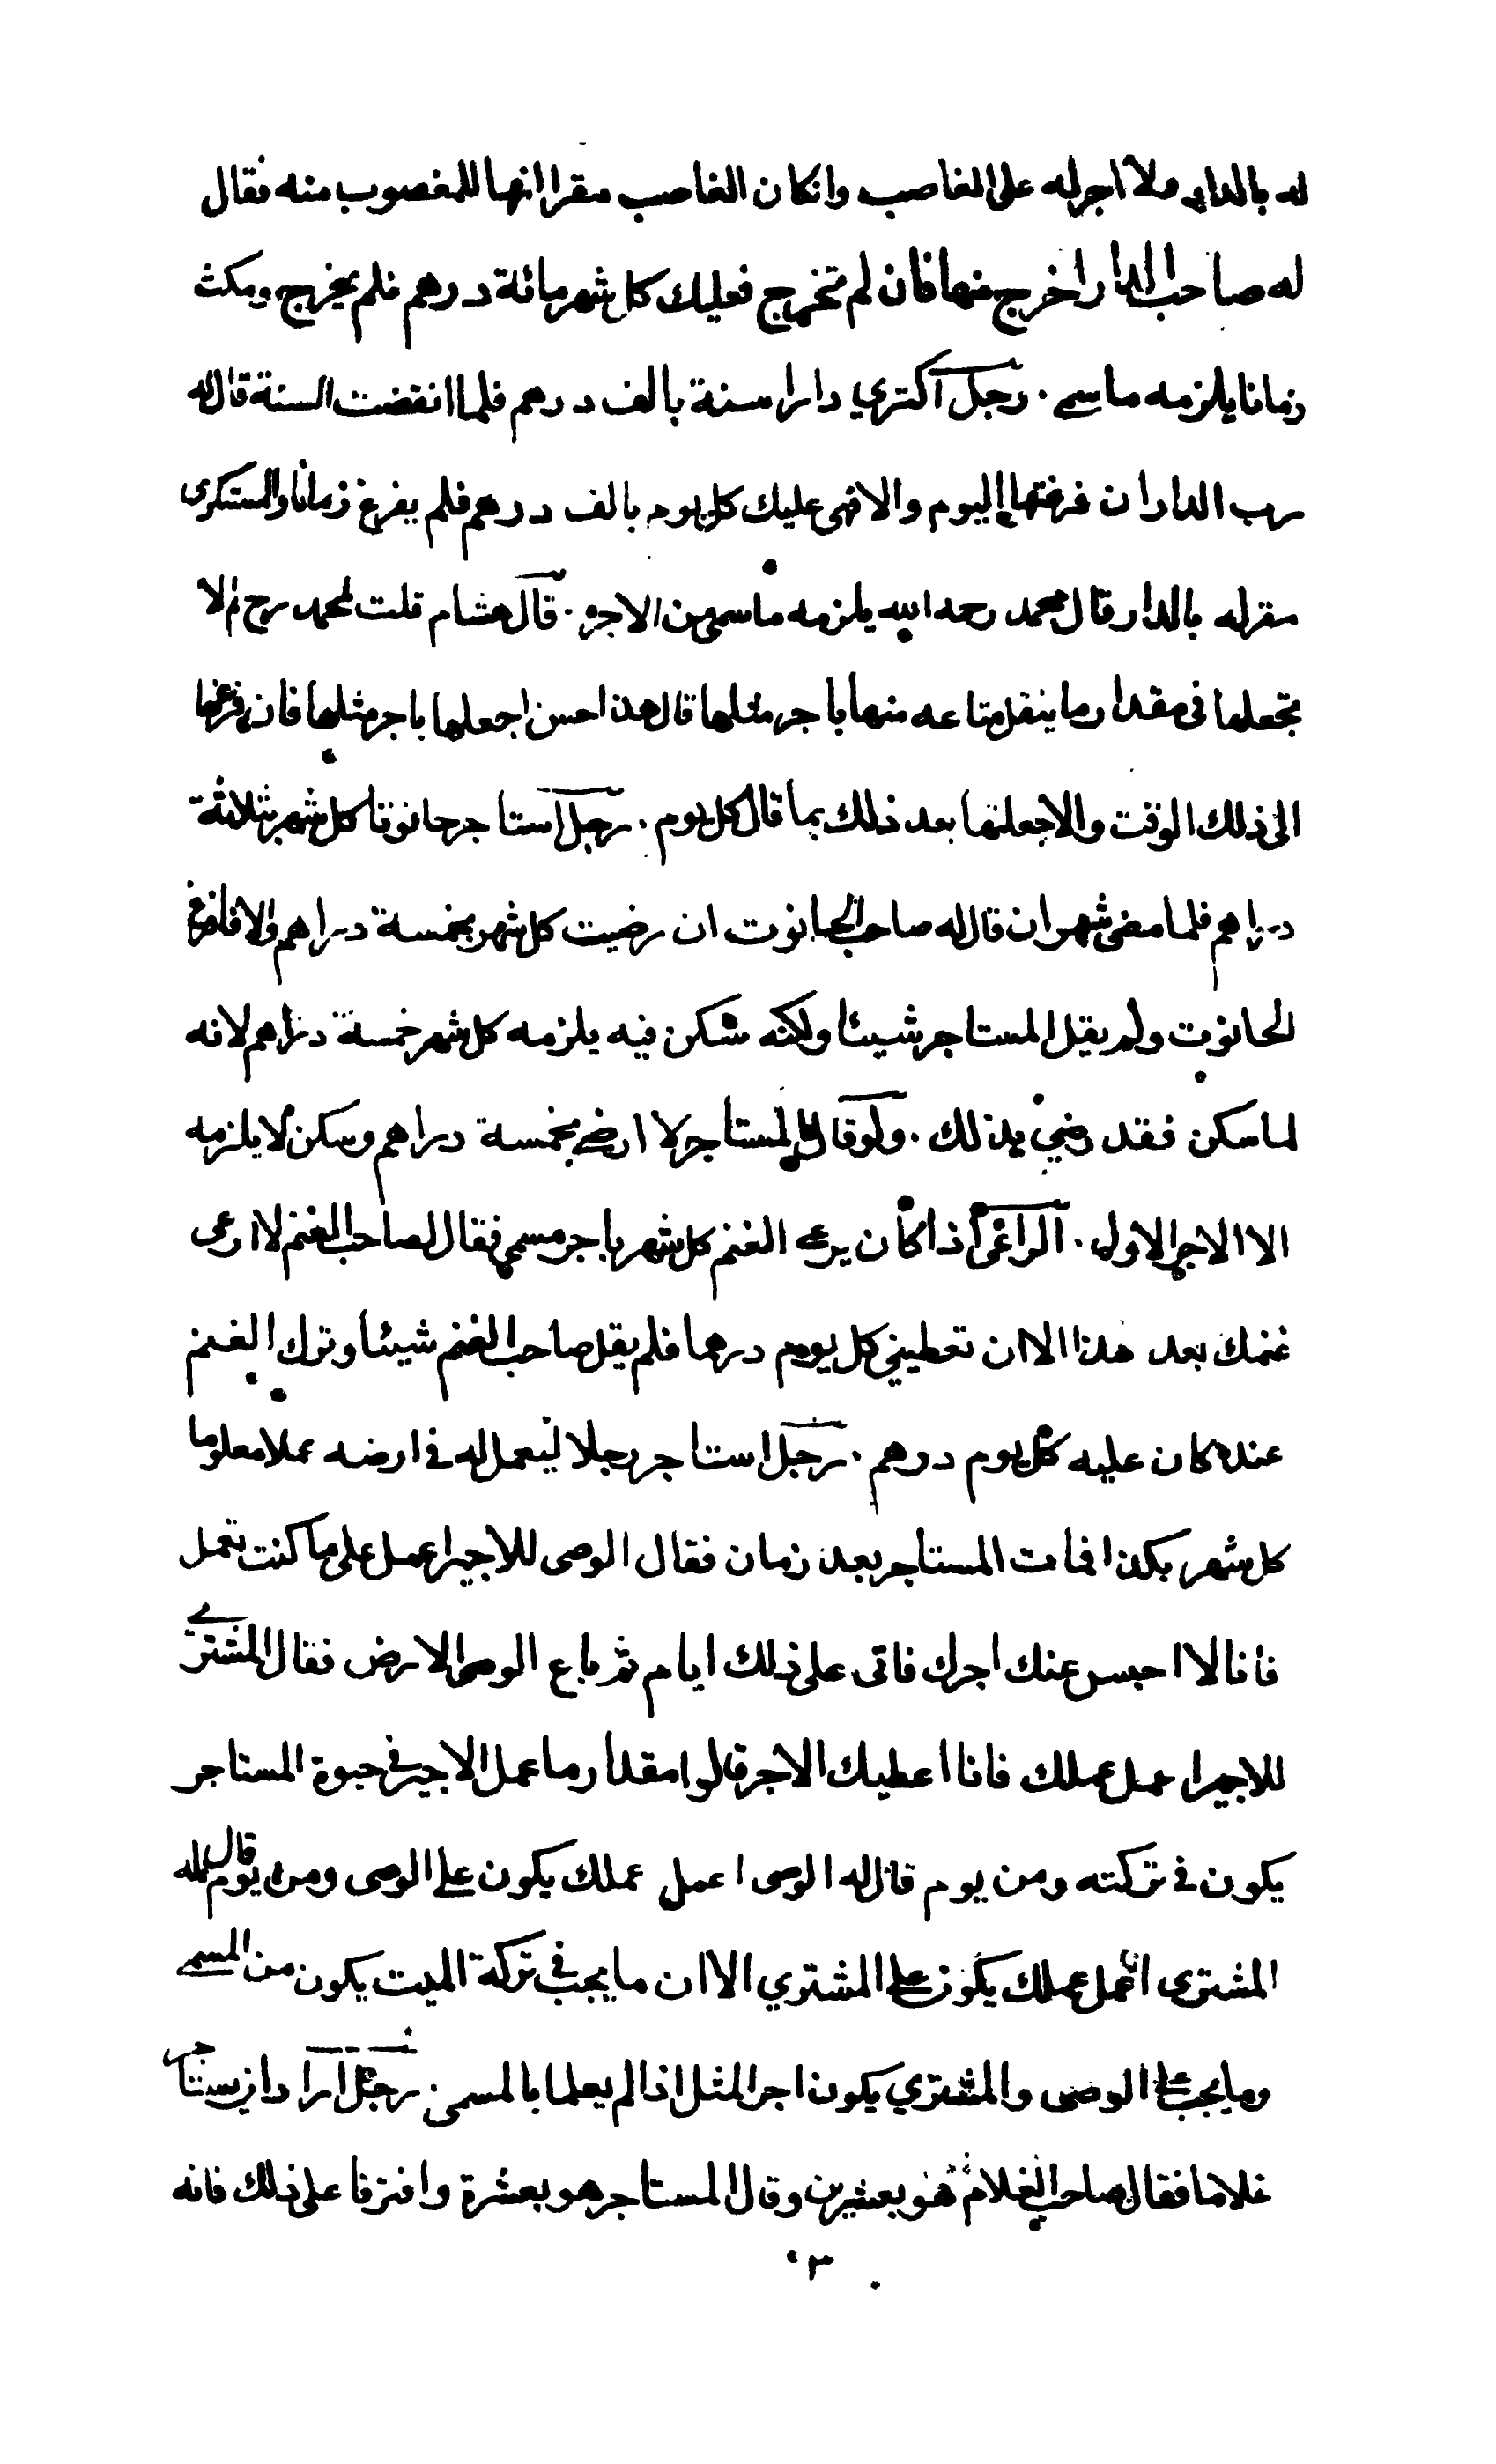 له بالدار ولا اجر له على الغاصب وان كان الغاصب مقرا انها للمغصوب منه فقال
له صاحب الدار اخرج منها فان لم تخرج فعليك كل شهر مائة درهم فلم يخرج ومكث
زمانا يلزمه ما سمى . رجل اكترى دارا سنة بالف درهم فلما انقضت السنة قال له
رب الدار ان فرغتها اليوم والا فهى عليك كل يوم بالف درهم فلم يفرغ زمانا والمستكرى
مقر له بالدار قال محمد رحمه الله يلزمه ما سمى من الاجر . قال هشام قلت لمحمد رح لم لا
تجعلها فى مقدار ما ينقل متاعه منها باجر مثلها قال هذا حسن اجعلها باجر مثلها فان فرغها
الى ذلك الوقت والا جعلتها بعد ذلك بما قال كل يوم . رجل استاجر حانوتا كل شهر بثلاثة
دراهم فلما مضى شهران قال له صاحب الحانوت ان رضيت كل شهر بخمسة دراهم والا فافرغ
الحانوت ولم يقل المستاجر شيئا ولكنه سكن فيه يلزمه كل شهر خمسة دراهم لانه
لما سكن فقد رضي بذلك . ولو قال المستاجر لا ارضى بخمسة دراهم وسكن لا يلزمه
الا الاجر الاول . الراعى اذا كان يرعى الغنم كل شهر باجر مسمى فقال لصاحب الغنم لا ارعى
غنمك بعد هذا الا ان تعطيني كل يوم درهما فلم يقل صاحب الغنم شيئا وترك الغنم
عنده كان عليه كل يوم درهم . رجل استاجر رجلا ليعمل له فى ارضه عملا معلوما
كل شهر بكذا فمات المستاجر بعد زمان فقال الوصى للاجير اعمل على ما كنت تعمل
فانا لا احبس عنك اجرك فاتى على ذلك ايام ثم باع الوصى الارض فقال المشترى
للاجير اعمل عملك فانا اعطيك الاجر قالوا مقدار ما عمل الاجير فى حيوة المستاجر
يكون فى تركته ومن يوم قال له الوصى اعمل عملك يكون على الوصى ومن يوم قال له
المشترى اعمل عملك يكون على المشتري الا ان ما يجب فى تركة الميت يكون من المسمى
وما يجب على الوصى والمشتري يكون اجر المثل اذا لم يعلما بالمسمى . رجل اراد ان يستاجر
غلاما فقال صاحب الغلام هو بعشرين وقال المستاجر هو بعشرة وافترقا على ذلك فانه
٣